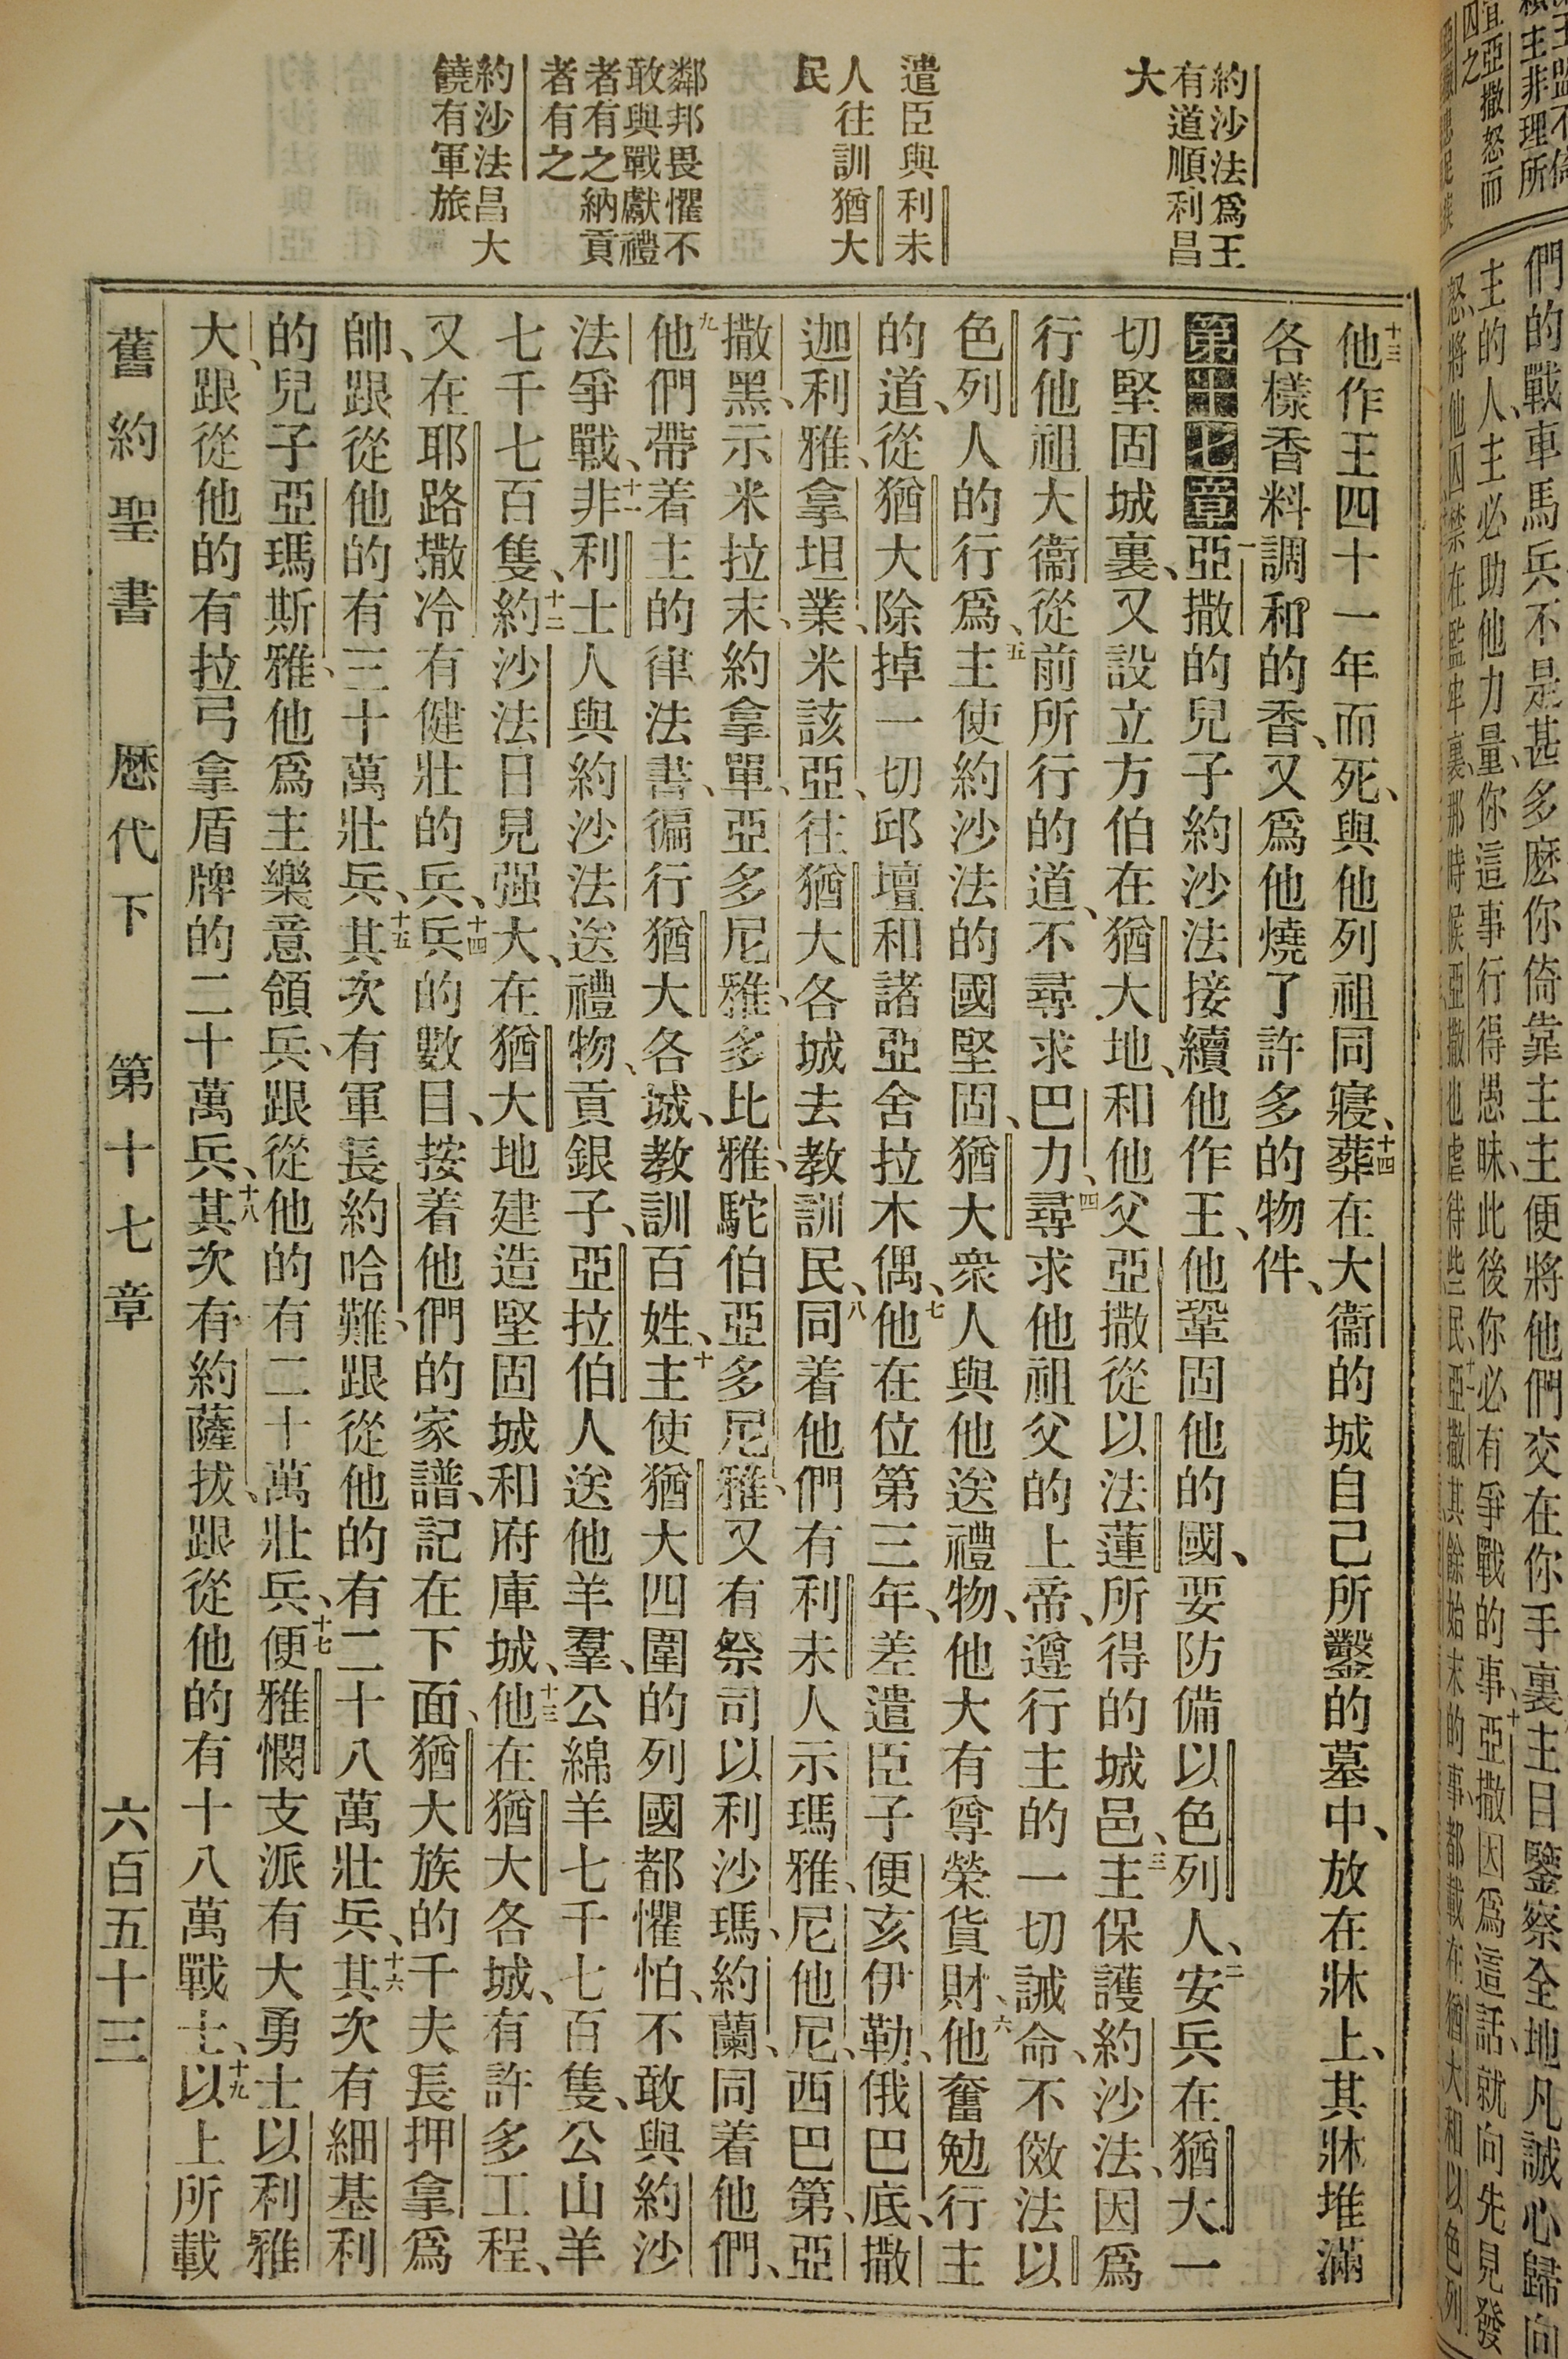 約沙法爲王
有道順利昌
大
遣臣與利未
人往訓猶大
民
鄰邦畏懼不
敢與戰獻禮
者有之納貢
者有之
約沙法昌大
饒有軍旅
十三他作王四十一年而死、與他列祖同寢、十四葬在大衞的城自己所鑿的墓中、放在牀上、其牀堆滿
各樣香料調和的香、又爲他燒了許多的物件、
第十七章一亞撒的兒子約沙法接續他作王、他鞏固他的國、要防備以色列人、二安兵在猶大一
切堅固城裏、又設立方伯在猶大地、和他父亞撒從以法蓮所得的城邑、三主保護約沙法、因爲
行他祖大衞從前所行的道、不尋求巴力、四尋求他祖父的上帝、遵行主的一切誡命、不傚法以
色列人的行爲、五主使約沙法的國堅固、猶大衆人與他送禮物、他大有尊榮貨財、六他奮勉行主
的道、從猶大除掉一切邱壇和諸亞舍拉木偶、七他在位第三年、差遣臣子便亥伊勒、俄巴底、撒
迦利雅、拿坦業、米該亞、往猶大各城去教訓民、八同着他們有利未人示瑪雅、尼他尼、西巴第、亞
撒黑、示米拉末、約拿單、亞多尼雅、多比雅、駝伯亞多尼雅、又有祭司以利沙瑪、約蘭、同着他們、
九他們帶着主的律法書、徧行猶大各城、教訓百姓、十主使猶大四圍的列國都懼怕、不敢與約沙
法爭戰、十一非利士人與約沙法送禮物、貢銀子、亞拉伯人送他羊羣、公綿羊七千七百隻、公山羊
七千七百隻、十二約沙法日見强大、在猶大地建造堅固城和府庫城、十三他在猶大各城、有許多工程、
又在耶路撒冷有健壯的兵、十四兵的數目、按着他們的家譜、記在下面、猶大族的千夫長押拿爲
帥、跟從他的有三十萬壯兵、十五其次有軍長約哈難、跟從他的有二十八萬壯兵、十六其次有細基利
的兒子亞瑪斯雅、他爲主樂意領兵、跟從他的有二十萬壯兵、十七便雅憫支派有大勇士以利雅
大、跟從他的有拉弓拿盾牌的二十萬兵、十八其次有約薩拔、跟從他的有十八萬戰士、十九以上所載
舊約聖書 歷代下 第十七章 六百五十三